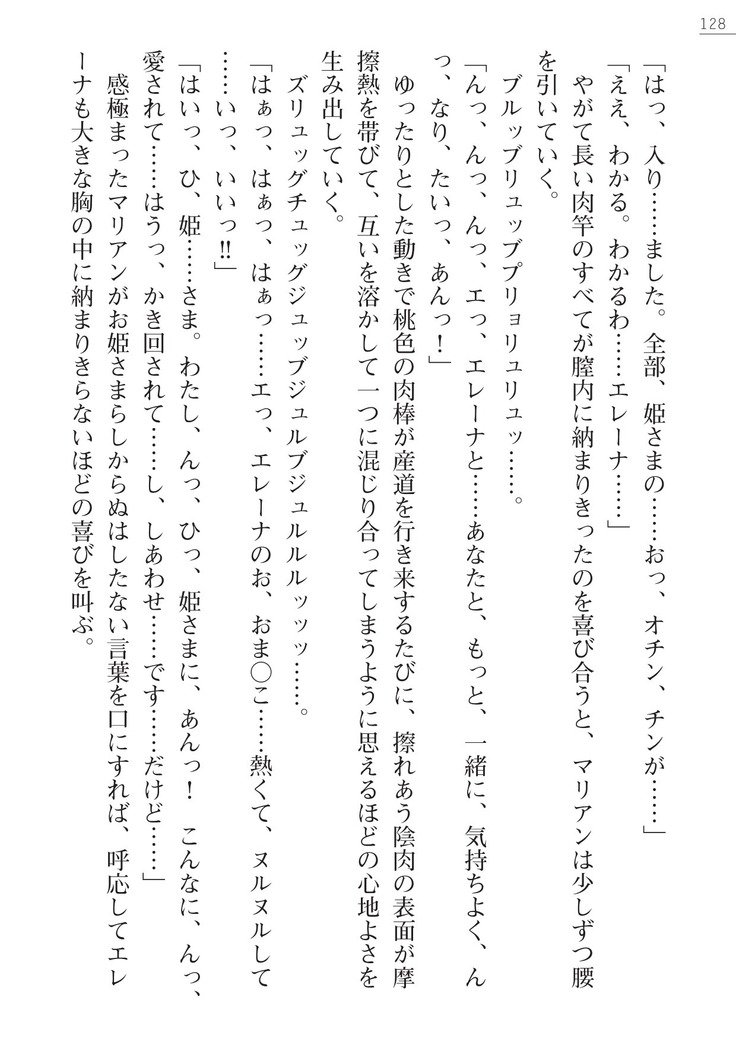 128
「はっ、入り……ました。全部、姫さまの……おっ、オチン、チンが……」
「ええ、わかる。わかるわ……エレーナ……」
　やがて長い肉竿のすべてが膣内に納まりきったのを喜び合うと、マリアンは少しずつ腰
を引いていく。
　ブルッブリュッブプリョリュリュッ……。
「んっ、んっ、んっ、エっ、エレーナと……あなたと、もっと、一緒に、気持ちよく、ん
っ、なり、たいっ、あんっ！」
　ゆったりとした動きで桃色の肉棒が産道を行き来するたびに、擦れあう陰肉の表面が摩
擦熱を帯びて、互いを溶かして一つに混じり合ってしまうように思えるほどの心地よさを
生み出していく。
　ズリュッグチュッグジュッブジュルブジュルルルッッッ……。
「はぁっ、はぁっ、はぁっ……エっ、エレーナのお、おま〇こ……熱くて、ヌルヌルして
……いっ、いいっ‼」
「はいっ、ひ、姫……さま。わたし、んっ、ひっ、姫さまに、あんっ！　こんなに、んっ、
愛されて……はうっ、かき回されて……し、しあわせ……です……だけど……」
　感極まったマリアンがお姫さまらしからぬはしたない言葉を口にすれば、呼応してエレ
ーナも大きな胸の中に納まりきらないほどの喜びを叫ぶ。